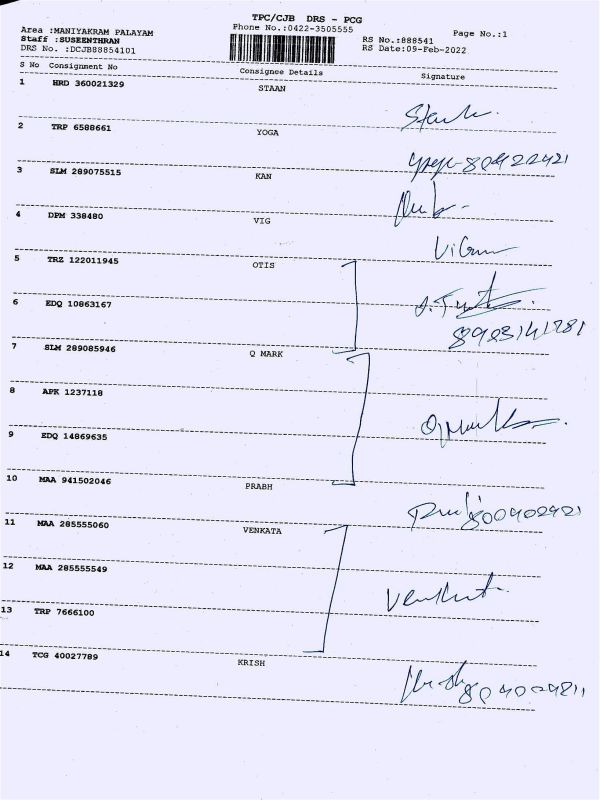 TPC/CJB DRS - PCG
Phone No.:0422-3505555
Area :MANIYAKRAM PALAYAM
Staff :SUSEENTHRAN
DRS No. :DCJB88854101
RS No.:888541 Page No.:1
RS Date:09-Feb-2022
S No Consignment No Consignee Details Signature
1 HRD 360021329 STAAN
2 TRP 6588661 YOGA
3 SLM 289075515 KAN
4 DPM 338480 VIG
5 TRZ 122011945 OTIS
6 EDQ 10863167
7 SLM 289085946 Q MARK
8 APK 1237118
9 EDQ 14869635
10 MAA 941502046 PRABH
11 MAA 285555060 VENKATA
12 MAA 285555549
13 TRP 7666100
14 TCG 40027789 KRISH